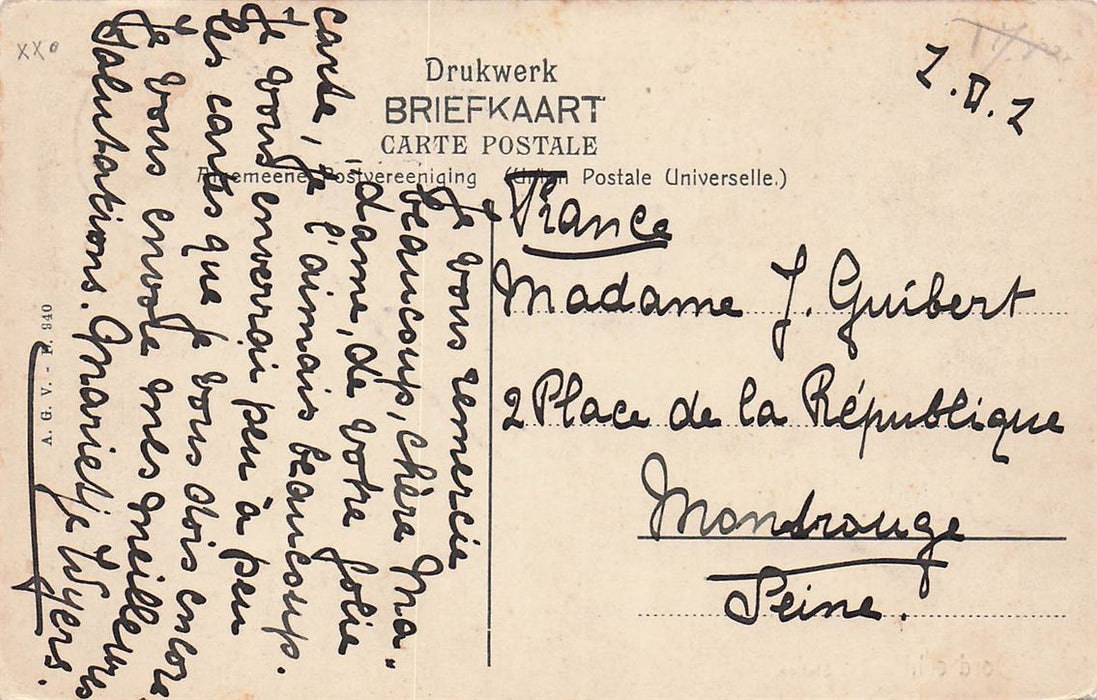 XX⁰
Drukwerk
BRIEFKAART
CARTE POSTALE
Algemeene Postvereeniging (Union Postale Universelle.)
France
Madame J. Guibert
2 Place de la République
Montrouge
Seine.
Je vous remercie
beaucoup, chère Ma„
"dame, de votre jolie
carte, je l'aimais beaucoup.
Je vous enverrai peu à peu
les cartes que je vous dois encore
Je vous envoie mes meilleures
Salutations. Marietje Wyers.
A. G. V. - F. 940